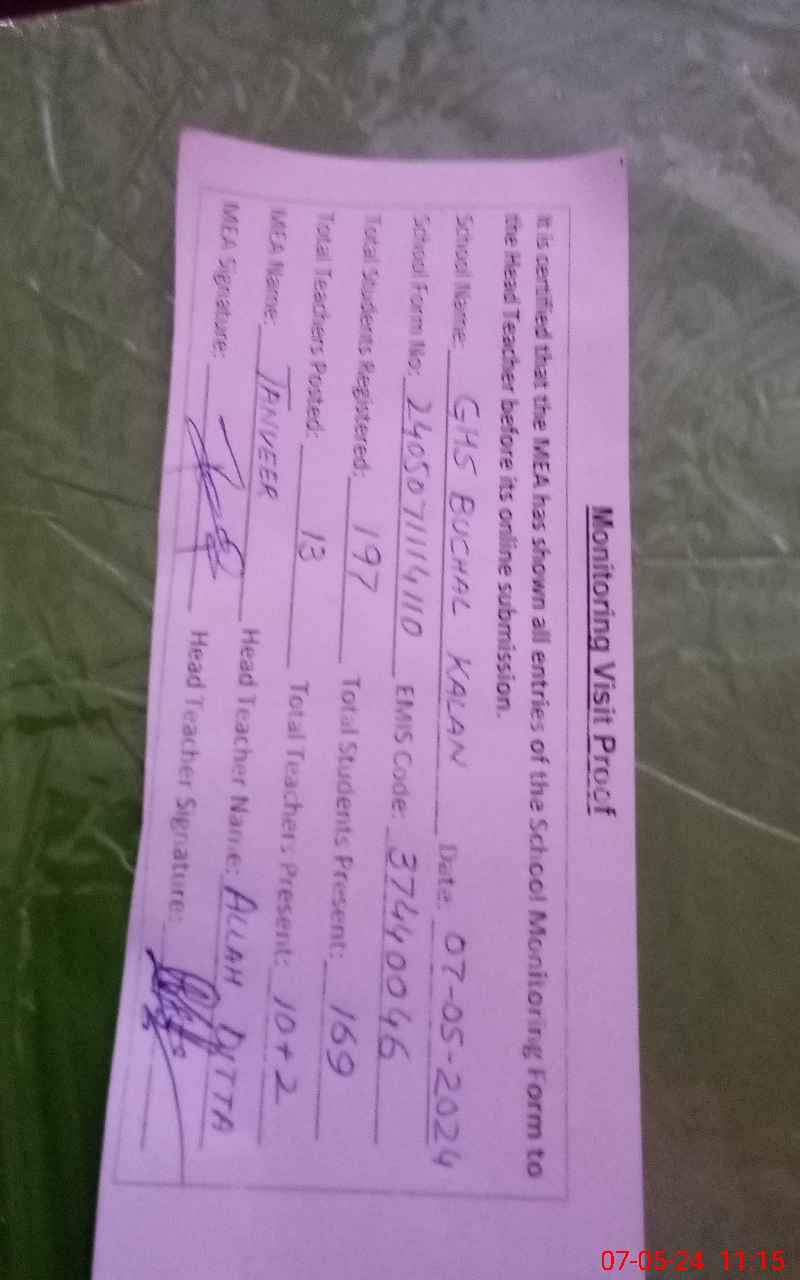 Monitoring Visit Proof
It is certified that the MEA has shown all entries of the School Monitoring Form to
the Head Teacher before its online submission.
School Name: GHS BUCHAL KALAN Date: 07-05-2024
School Form No: 2405071114110 EMIS Code: 37440046
Total Students Registered: 197 Total Students Present: 169
Total Teachers Posted: 13 Total Teachers Present: 10+2
MEA Name: TANVEER Head Teacher Name: ALLAH DITTA
MEA Signature: Head Teacher Signature:
07-05-24 11:15